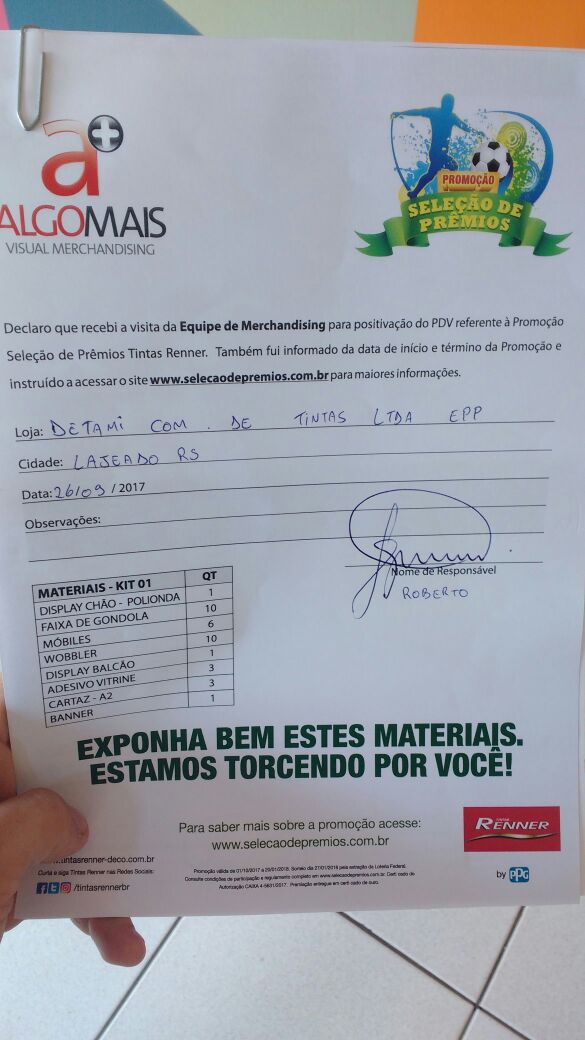 a+
ALGOMAIS
VISUAL MERCHANDISING
PROMOÇÃO
SELEÇÃO DE
PRÊMIOS
Declaro que recebi a visita da Equipe de Merchandising para positivação do PDV referente à Promoção
Seleção de Prêmios Tintas Renner. Também fui informado da data de início e término da Promoção e
instruído a acessar o site www.selecaodepremios.com.br para maiores informações.
Loja: DETAMI COM. DE TINTAS LTDA EPP
Cidade: LAJEADO RS
Data: 26/09 / 2017
Observações:
Nome de Responsável
ROBERTO
MATERIAIS - KIT 01 QT
DISPLAY CHÃO - POLIONDA 1
FAIXA DE GONDOLA 10
MÓBILES 6
WOBBLER 10
DISPLAY BALCÃO 1
ADESIVO VITRINE 3
CARTAZ - A2 3
BANNER 1
EXPONHA BEM ESTES MATERIAIS.
ESTAMOS TORCENDO POR VOCÊ!
Para saber mais sobre a promoção acesse:
www.selecaodepremios.com.br
TINTAS
RENNER
by PPG
.tintasrenner-deco.com.br
Curta e siga Tintas Renner nas Redes Sociais:
/tintasrennerbr
Promoção válida de 01/10/2017 a 20/01/2018. Sorteio dia 27/01/2018 pela extração da Loteria Federal.
Consulte condições de participação e regulamento completo em www.selecaodepremios.com.br. Certi cado de
Autorização CAIXA 4-5631/2017. Premiação entregue em certi cado de ouro.